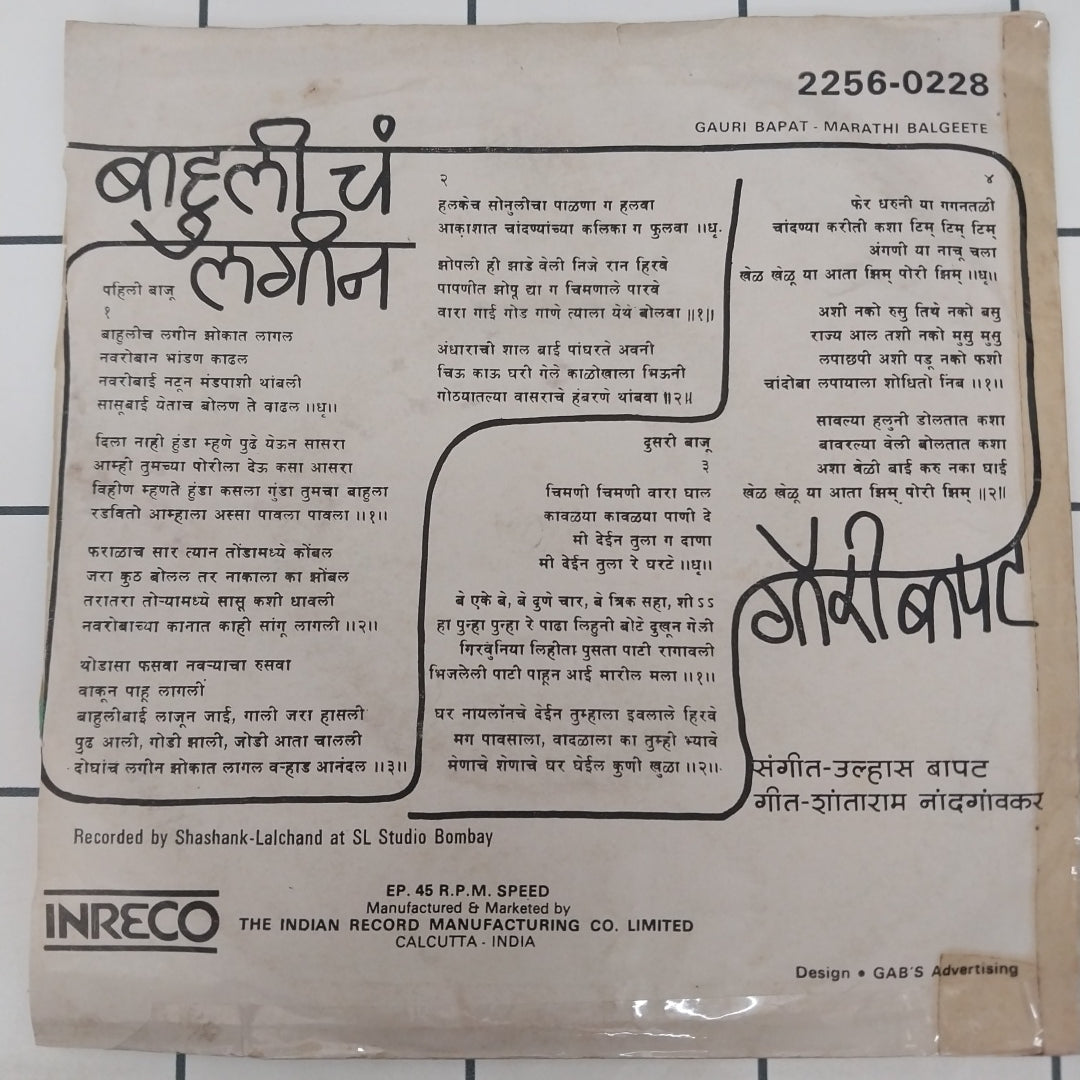 2256-0228
GAURI BAPAT - MARATHI BALGEETE
बाहुली चं
लगीन
पहिली बाजू
१
बाहुलीच लगीन झोकात लागल
नवरोबान भांडण काढल
नवरीबाई नटून मंडपाशी थांबली
सासूबाई येताच बोलण ते वाढल ॥धृ॥
दिला नाही हुंडा म्हणे पुढे येऊन सासरा
आम्ही तुमच्या पोरीला देऊ कसा आसरा
विहीण म्हणते हुंडा कसला गुंडा तुमचा बाहुला
रडवितो आम्हाला अस्सा पावला पावला ॥१॥
फराळाच सार त्यान तोंडामध्ये कोंबल
जरा कुठ बोलल तर नाकाला का झोंबल
तरातरा तोऱ्यामध्ये सासू कशी धावली
नवरोबाच्या कानात काही सांगू लागली ॥२॥
थोडासा फसवा नवऱ्याचा रुसवा
वाकून पाहू लागलीं
बाहुलीबाई लाजून जाई, गाली जरा हासली
पुढ आली, गोडी झाली, जोडी आता चालली
दोघांच लगीन झोकात लागल वऱ्हाड आनंदल ॥३॥
२
हलकेच सोनुलीचा पाळणा ग हलवा
आकाशात चांदण्यांच्या कलिका ग फुलवा ॥धृ.
झोपली ही झाडे वेली निजे रान हिरवे
पापणीत झोपू द्या ग चिमणाले पारवे
वारा गाई गोड गाणे त्याला येथे बोलवा ॥१॥
अंधाराची शाल बाई पांघरते अवनी
चिऊ काऊ घरी गेले काळोखाला भिऊनी
गोठयातल्या वासराचे हंबरणे थांबवा ॥२॥
दुसरी बाजू
३
चिमणी चिमणी वारा घाल
कावळया कावळया पाणी दे
मी देईन तुला ग दाणा
मी देईन तुला रे घरटे ॥धृ॥
बे एके बे, बे दुणे चार, बे त्रिक सहा, शी ऽ ऽ
हा पुन्हा पुन्हा रे पाढा लिहुनी बोटे दुखून गेली
गिरवुंनिया लिहीता पुसता पाटी रागावली
भिजलेली पाटी पाहून आई मारील मला ॥१॥
घर नायलॉनचे देईन तुम्हाला इवलाले हिरवे
मग पावसाला, वादळाला का तुम्ही भ्यावे
मेणाचे शेणाचे घर घेईल कुणी खुळा ॥२॥
४
फेर धरुनी या गगनतळी
चांदण्या करीती कशा टिम् टिम् टिम्
अंगणी या नाचू चला
खेळ खेळू या आता झिम् पोरी झिम् ॥धृ॥
अशी नको रुसु तिथे नको बसु
राज्य आल तशी नको मुसु मुसु
लपाछपी अशी पडू नको फशी
चांदोबा लपायाला शोधितो निंब ॥१॥
सावल्या हलुनी डोलतात कशा
बावरल्या वेली बोलतात कशा
अशा वेळी बाई करु नका घाई
खेळ खेळू या आता झिम् पोरी झिम् ॥२॥
गौरी बापट
संगीत-उल्हास बापट
गीत-शांताराम नांदगांवकर
Recorded by Shashank-Lalchand at SL Studio Bombay
INRECO
EP. 45 R.P.M. SPEED
Manufactured & Marketed by
THE INDIAN RECORD MANUFACTURING CO. LIMITED
CALCUTTA - INDIA
Design • GAB'S Advertising